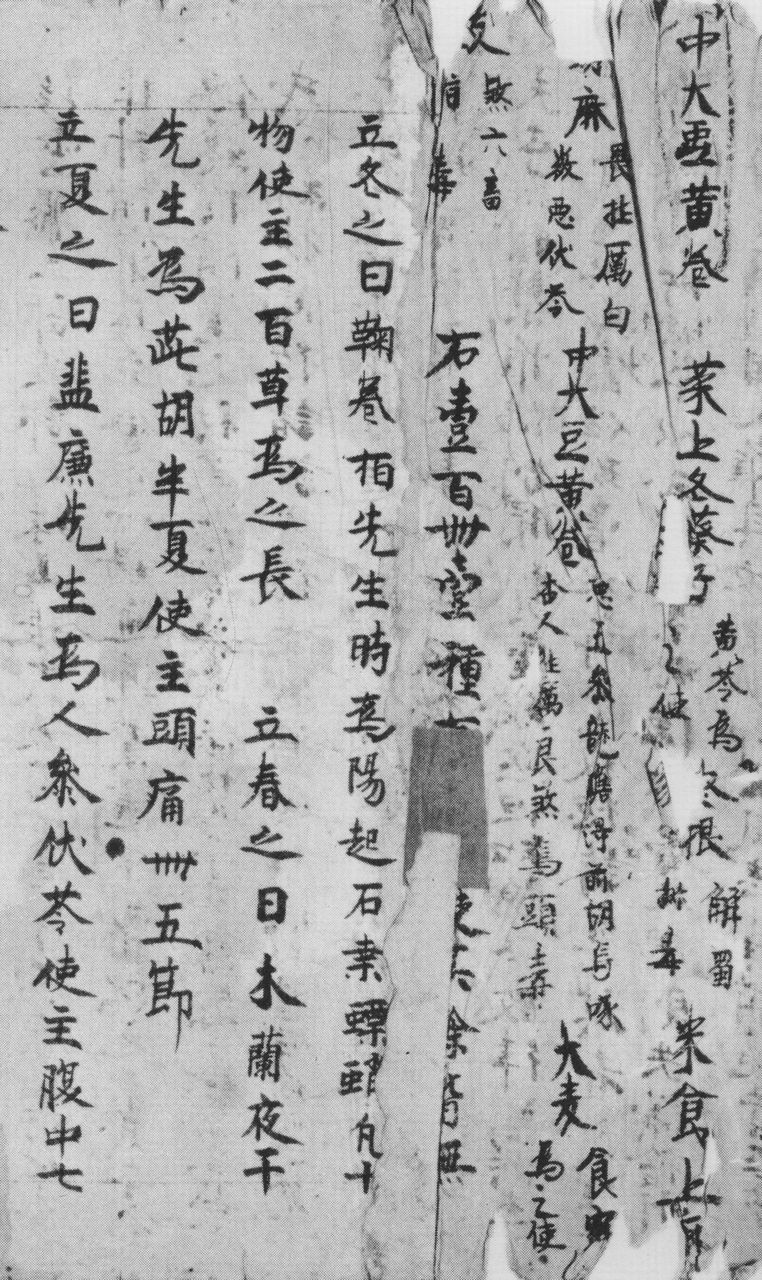 中大豆黃卷 菜上冬葵子 黃芩為之使 冬根解蜀椒毒 米食上
麻 畏牡厲白薇惡伏苓 中大豆黃卷 惡五參龍膽得前胡烏喙杏人牡厲良煞烏頭毒 大麦 食蜜為之使
煞六畜毒 石壹百卌壹種 餘皆無
立冬之日鞠卷柏先生時為陽起石桒螵蛸凡十
物使主二百草為之長 立春之日木蘭夜干
先生為茈胡半夏使主頭痛卌五節
立夏之日蜚廉先生為人參伏苓使主腹中七